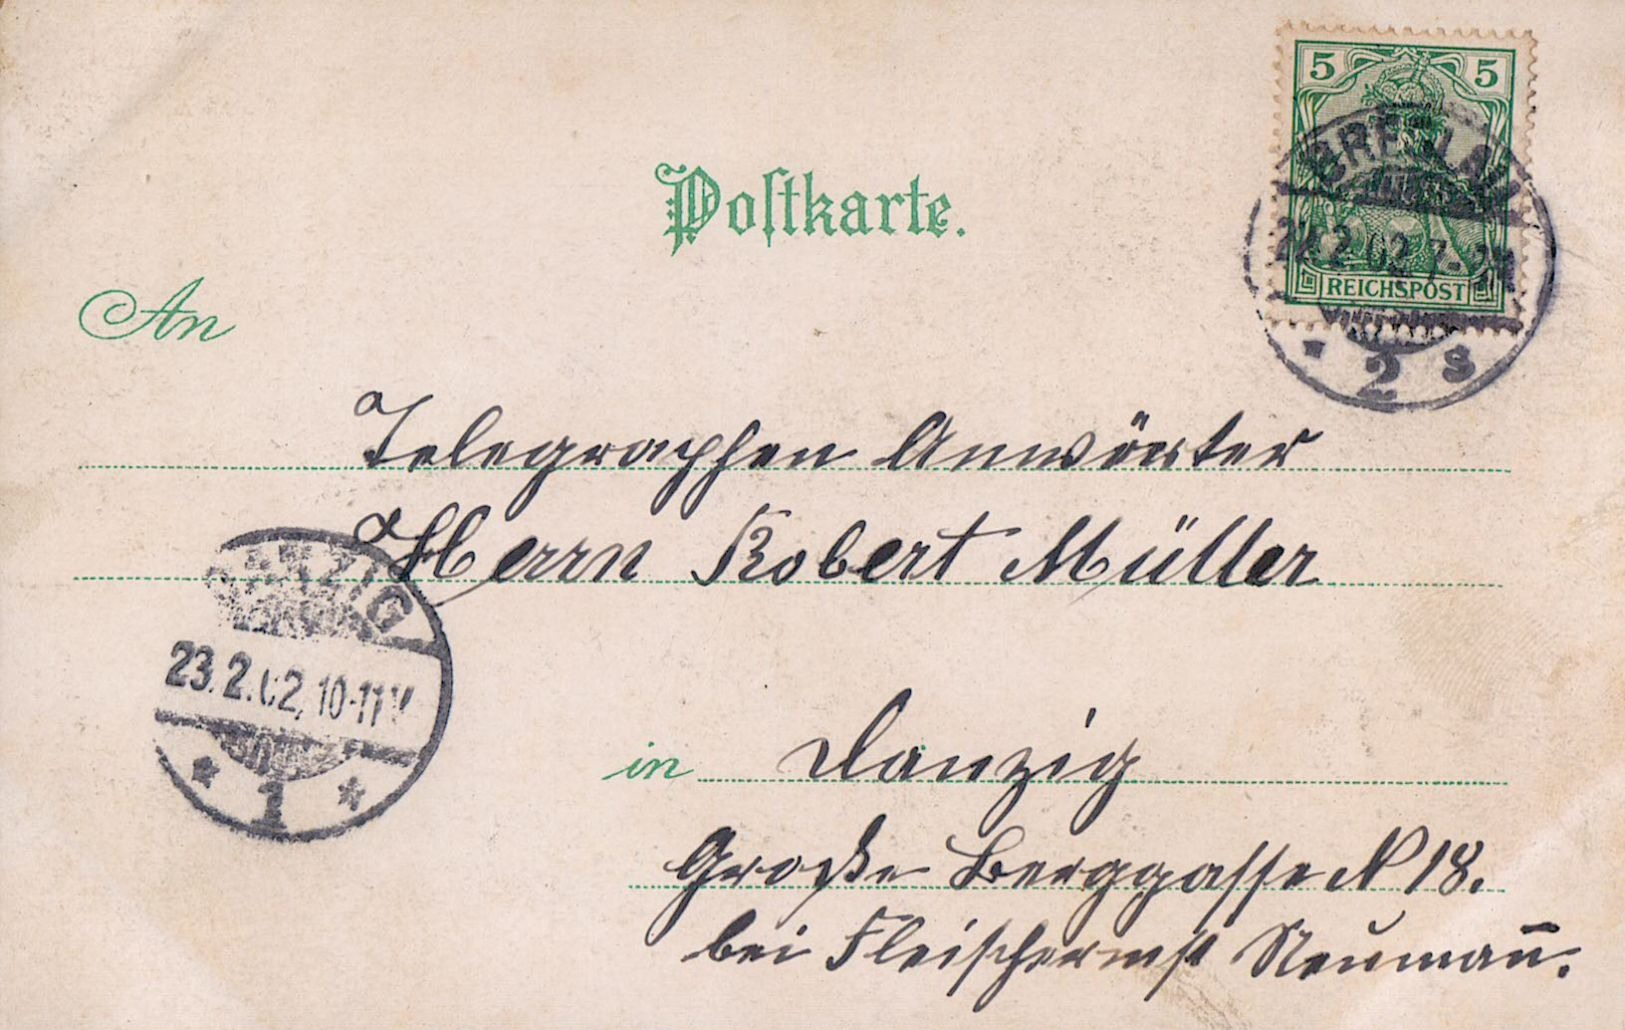 5 5
REICHSPOST
BRESLAU
2.02.7-
* 2 s
Postkarte.
An
Telegraphen Anwärter
Herrn Robert Müller
DANZIG
23.2.02, 10-11V
* 1 *
in Danzig
Große Berggasse N 18.
bei Fleischermst Neumañ.